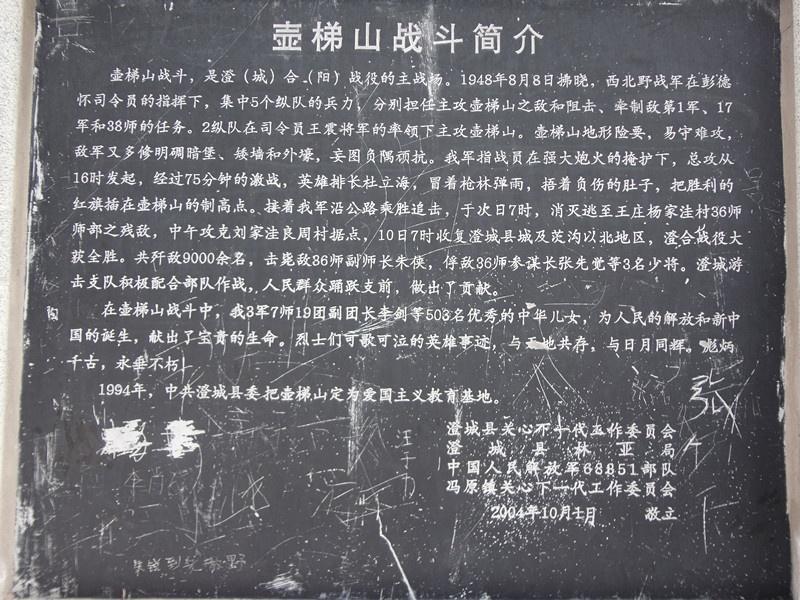 壶梯山战斗简介
壶梯山战斗，是澄（城）合（阳）战役的主战场。1948年8月8日拂晓，西北野战军在彭德
怀司令员的指挥下，集中5个纵队的兵力，分别担任主攻壶梯山之敌和阻击、牵制敌第1军、17
军和38师的任务。2纵队在司令员王震将军的率领下主攻壶梯山。壶梯山地形险要，易守难攻，
敌军又多修明碉暗堡、矮墙和外壕，妄图负隅顽抗。我军指战员在强大炮火的掩护下，总攻从
16时发起，经过75分钟的激战，英雄排长杜立海，冒着枪林弹雨，捂着负伤的肚子，把胜利的
红旗插在壶梯山的制高点。接着我军沿公路乘胜追击，于次日7时，消灭逃至王庄杨家洼村36师
师部之残敌，中午攻克刘家洼良周村据点，10日7时收复澄城县城及茨沟以北地区，澄合战役大
获全胜。共歼敌9000余名，击毙敌36师副师长朱侠，俘敌36师参谋长张先觉等3名少将。澄城游
击支队积极配合部队作战，人民群众踊跃支前，做出了贡献。
在壶梯山战斗中，我3军7师19团副团长李剑等503名优秀的中华儿女，为人民的解放和新中
国的诞生，献出了宝贵的生命。烈士们可歌可泣的英雄事迹，与天地共存，与日月同辉。彪炳
千古，永垂不朽！
1994年，中共澄城县委把壶梯山定为爱国主义教育基地。
澄城县关心下一代工作委员会
澄城县林业局
中国人民解放军68851部队
冯原镇关心下一代工作委员会
2004年10月1日 敬立